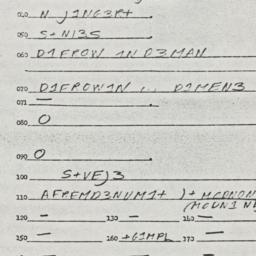 020 N J1NG3R+
050 S+N13S
060 D1FROW 1N D3MAN
070 D1FROW1N ... D1MEN3
071 —
080 O
090 O
100 S+VEJ3
110 AFREMD3NUM1+ )+ MCDNON
(MCUN1 N
120 - 130 - 160 -
150 - 160 +G1MPL 170 -